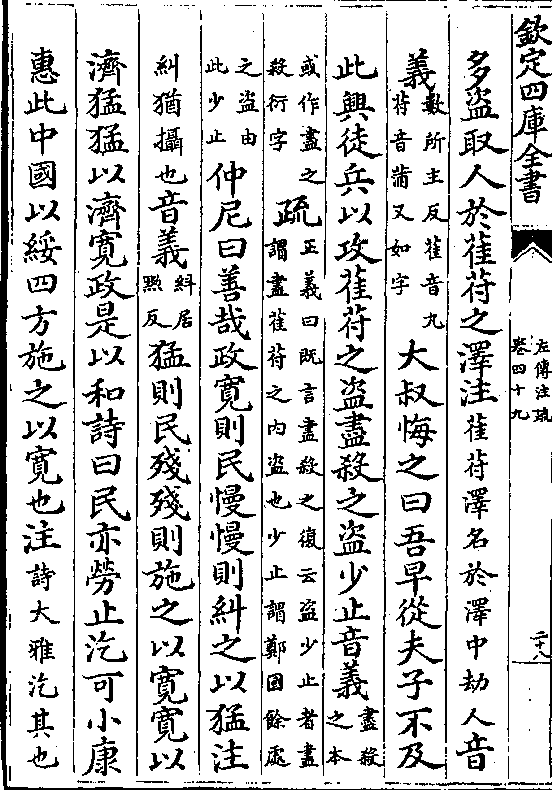 欽定四庫全書
左傳注疏
卷四十九
二十八
多盜取人於萑苻之澤注萑苻澤名於澤中劫人音
義數所主反萑音九苻音蒲又如字大叔悔之曰吾早從夫子不及
此興徒兵以攻萑苻之盜盡殺之盜少止音義盡殺之本
或作盡之殺衍字疏正義曰既言盡殺之復云盜少止者盡謂盡萑苻之内盜也少止謂鄭國餘處
之盜由此少止仲尼曰善哉政寬則民慢慢則糾之以猛注
糾猶攝也音義糾居黝反猛則民殘殘則施之以寬寬以
濟猛猛以濟寬政是以和詩曰民亦勞止汔可小康
惠此中國以綏四方施之以寬也注詩大雅汔其也